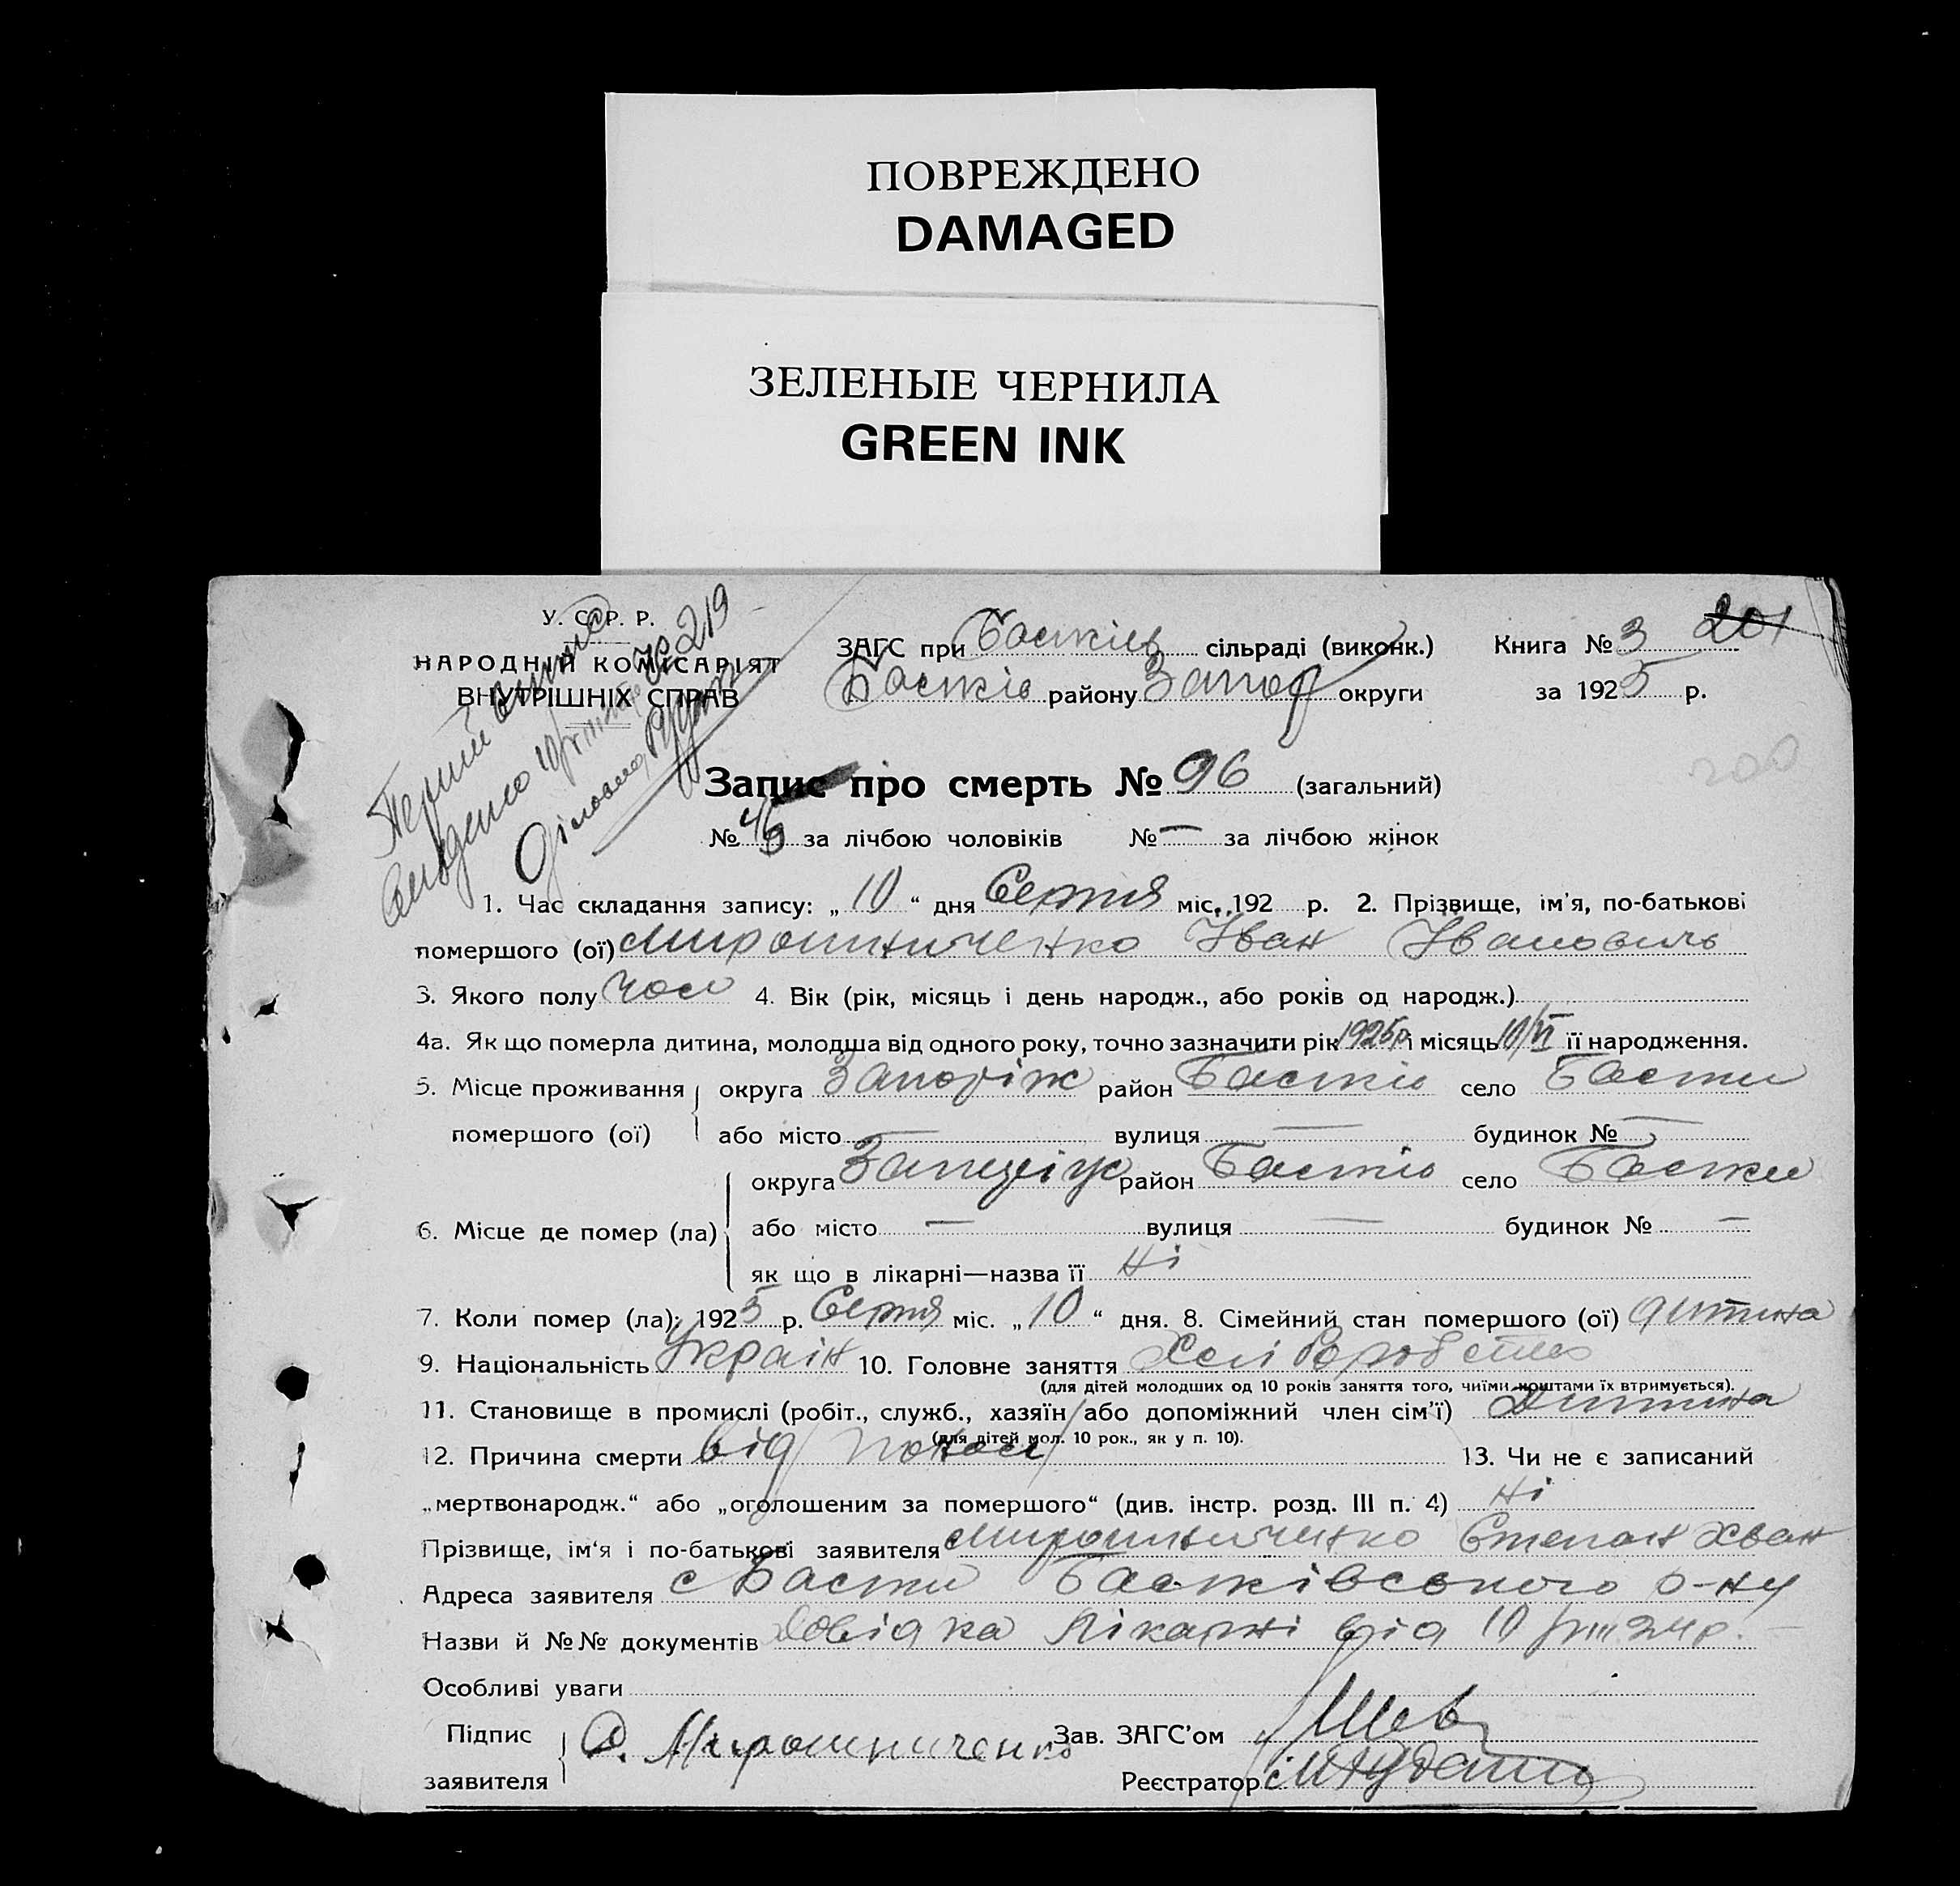 ПОВРЕЖДЕНО
DAMAGED
ЗЕЛЕНЫЕ ЧЕРНИЛА
GREEN INK
201
У. С. Р. Р.
НАРОДНІЙ КОМІСАРІЯТ
ВНУТРІШНІХ СПРАВ
№ 219
ЗАГС при сільраді (виконк.) Книга № 3
району Запор округи за 1925 р.
200
Запис про смерть № 96 (загальний)
№ 45 за лічбою чоловіків № — за лічбою жінок
1. Час складання запису: „10“ дня Серпня міс. 192 р. 2. Прізвище, ім'я, по-батькові
помершого (ої) Мирошниченко Іван Іванович
3. Якого полу чол 4. Вік (рік, місяць і день народж., або років од народж.)
4а. Як що померла дитина, молодша від одного року, точно зазначити рік 1925р і місяць 10/VI її народження.
5. Місце проживання округа Запоріж район село
помершого (ої) або місто — вулиця — будинок № —
округа район село
6. Місце де помер (ла) або місто — вулиця — будинок № —
як що в лікарні—назва її Ні
7. Коли помер (ла): 1925 р. Серпня міс. „10“ дня. 8. Сімейний стан помершого (ої) дитина
9. Національність Україн 10. Головне заняття Хліборобство
(для дітей молодших од 10 років заняття того, чиїми коштами їх втримується).
11. Становище в промислі (робіт., служб., хазяїн або допоміжний член сім'ї) Дитина
(для дітей мол. 10 рок., як у п. 10).
12. Причина смерти від поносу 13. Чи не є записаний
„мертвонародж.“ або „оголошеним за помершого“ (див. інстр. розд. III п. 4) Ні
Прізвище, ім'я і по-батькові заявителя Мирошниченко Степан
Адреса заявителя с р-ну
Назви й №№ документів Довідка Лікарні від 10/VIII 24р.
Особливі уваги
Підпис С. Мирошниченко Зав. ЗАГС'ом
заявителя Реєстратор